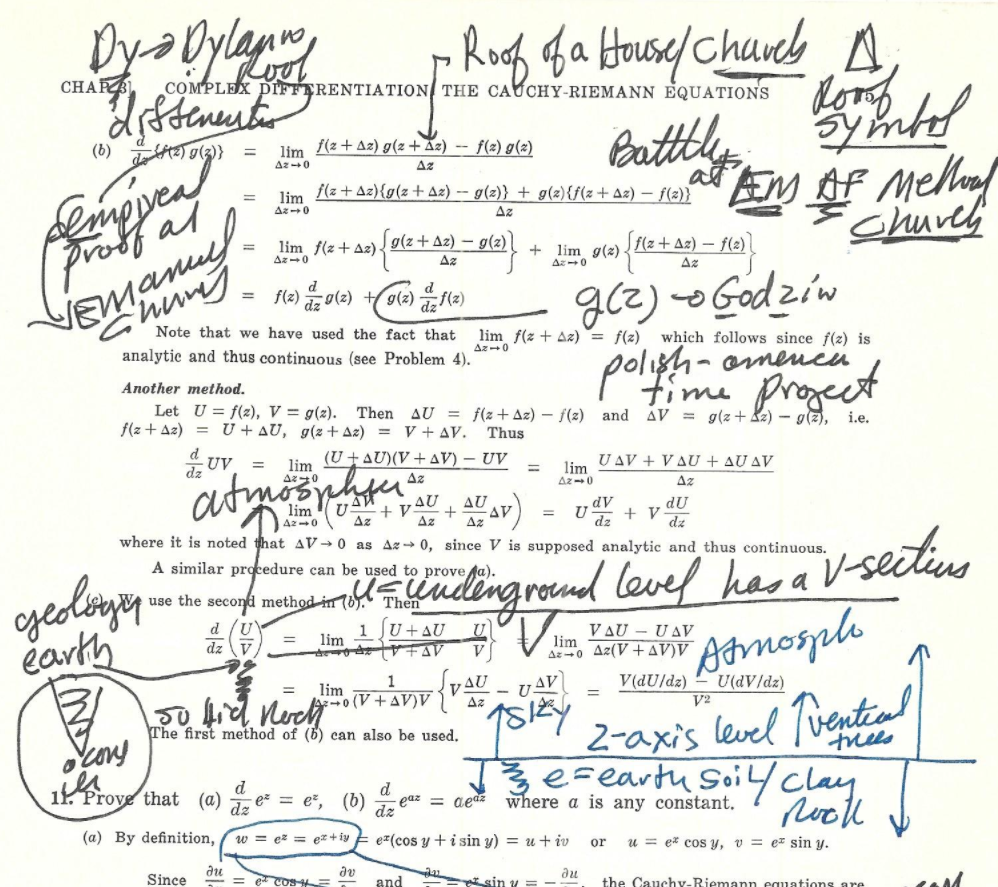 Dy → Dylann Roof
Roof of a House/Church
Δ
Roof Symbol
CHAP. 3] COMPLEX DIFFERENTIATION THE CAUCHY-RIEMANN EQUATIONS
(b) d/dz {f(z) g(z)} = lim Δz→0 [f(z + Δz) g(z + Δz) − f(z) g(z)] / Δz
Battle at EM AF Method Church
= lim Δz→0 [f(z + Δz){g(z + Δz) − g(z)} + g(z){f(z + Δz) − f(z)}] / Δz
proof at
= lim Δz→0 f(z + Δz) {[g(z + Δz) − g(z)] / Δz} + lim Δz→0 g(z) {[f(z + Δz) − f(z)] / Δz}
= f(z) d/dz g(z) + g(z) d/dz f(z)
g(z) → God
Note that we have used the fact that lim Δz→0 f(z + Δz) = f(z) which follows since f(z) is
analytic and thus continuous (see Problem 4).
polish-
time project
Another method.
Let U = f(z), V = g(z). Then ΔU = f(z + Δz) − f(z) and ΔV = g(z + Δz) − g(z), i.e.
f(z + Δz) = U + ΔU, g(z + Δz) = V + ΔV. Thus
d/dz UV = lim Δz→0 [(U + ΔU)(V + ΔV) − UV] / Δz = lim Δz→0 [U ΔV + V ΔU + ΔU ΔV] / Δz
= lim Δz→0 (U ΔV/Δz + V ΔU/Δz + ΔU/Δz ΔV) = U dV/dz + V dU/dz
where it is noted that ΔV → 0 as Δz → 0, since V is supposed analytic and thus continuous.
A similar procedure can be used to prove (a).
U = underground level has a V-section
geology
earth
(c) We use the second method in (b). Then
d/dz (U/V) = lim Δz→0 1/Δz {(U + ΔU)/(V + ΔV) − U/V} = lim Δz→0 [V ΔU − U ΔV] / [Δz(V + ΔV)V]
= lim Δz→0 1/[(V + ΔV)V] {V ΔU/Δz − U ΔV/Δz} = [V(dU/dz) − U(dV/dz)] / V²
Sky
Z-axis level
vertical
trees
The first method of (b) can also be used.
e = earth soil/clay
Rock
11. Prove that (a) d/dz e^z = e^z, (b) d/dz e^az = ae^az where a is any constant.
(a) By definition, w = e^z = e^(x+iy) = e^x(cos y + i sin y) = u + iv or u = e^x cos y, v = e^x sin y.
Since ∂u/ = e^x cos y = ∂v/ and ∂v/ = e^x sin y = −∂u/, the Cauchy-Riemann equations are